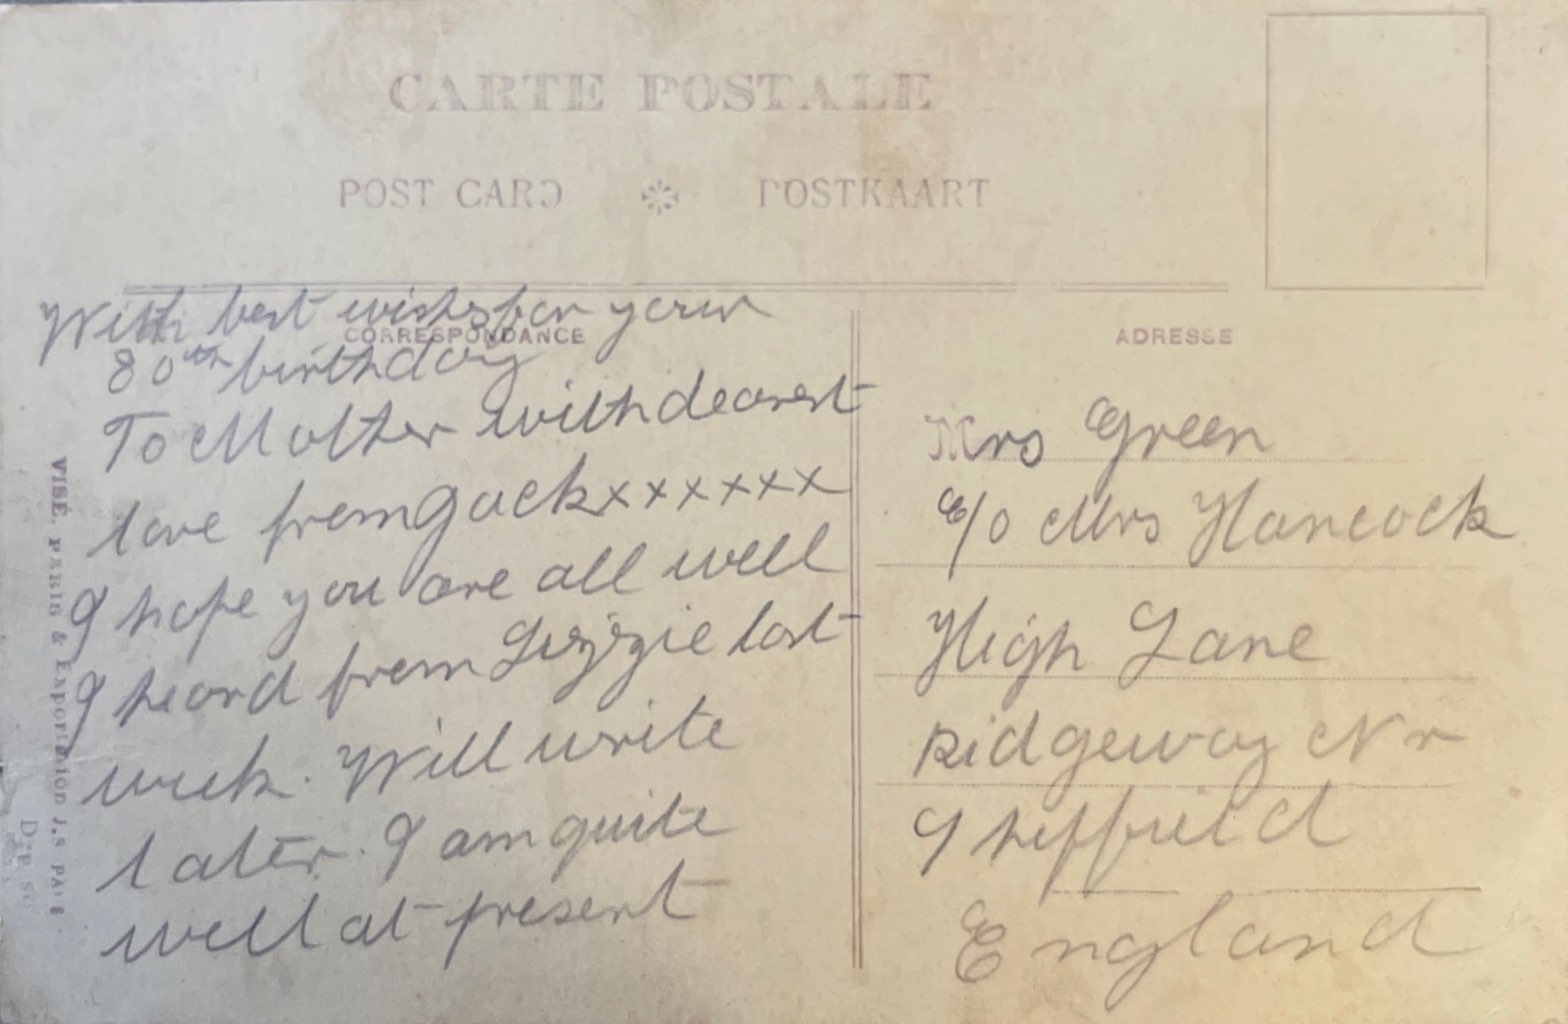 CARTE POSTALE
POST CARD POSTKAART
CORRESPONDANCE
With best wishes for your
80th birthday
To Mother with dearest
love from Jack xxxxxx
I hope you are all well
I heard from Lizzie last
week. Will write
later. I am quite
well at present
ADRESSE
Mrs Green
C/o Mrs Hancock
High Lane
Ridgeway Nr
Sheffield
England
VISE, PARIS & Exportation J.S PARIS